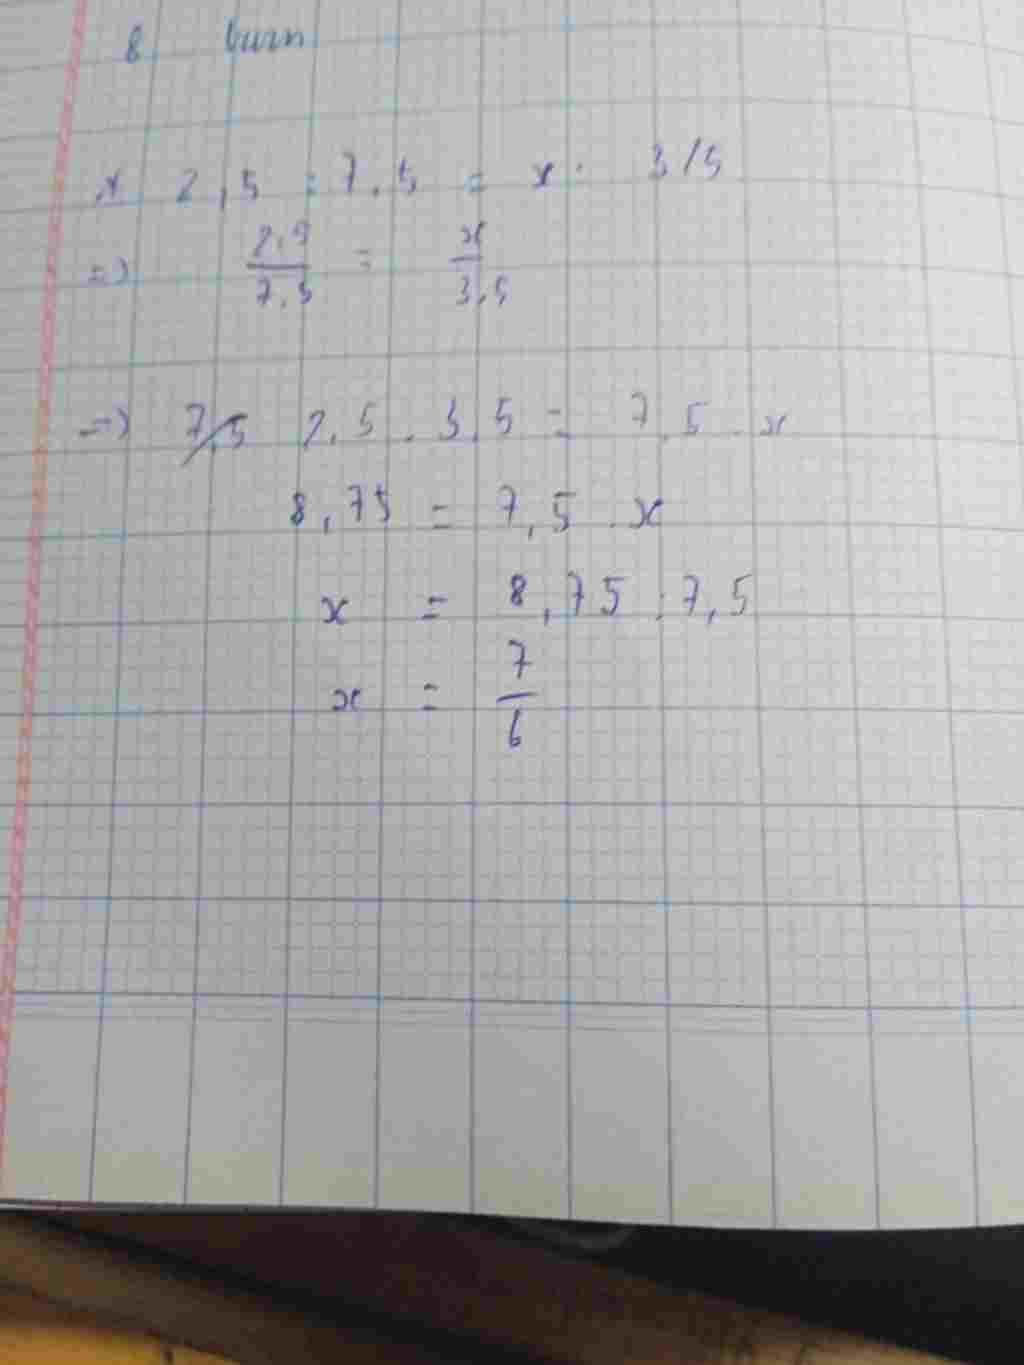 8
2,5 : 7,5 = x : 3/5
=> 2,5/7,5 = x/3,5
=> 2,5 . 3,5 = 7,5 . x
8,75 = 7,5 . x
x = 8,75 : 7,5
x = 7/6